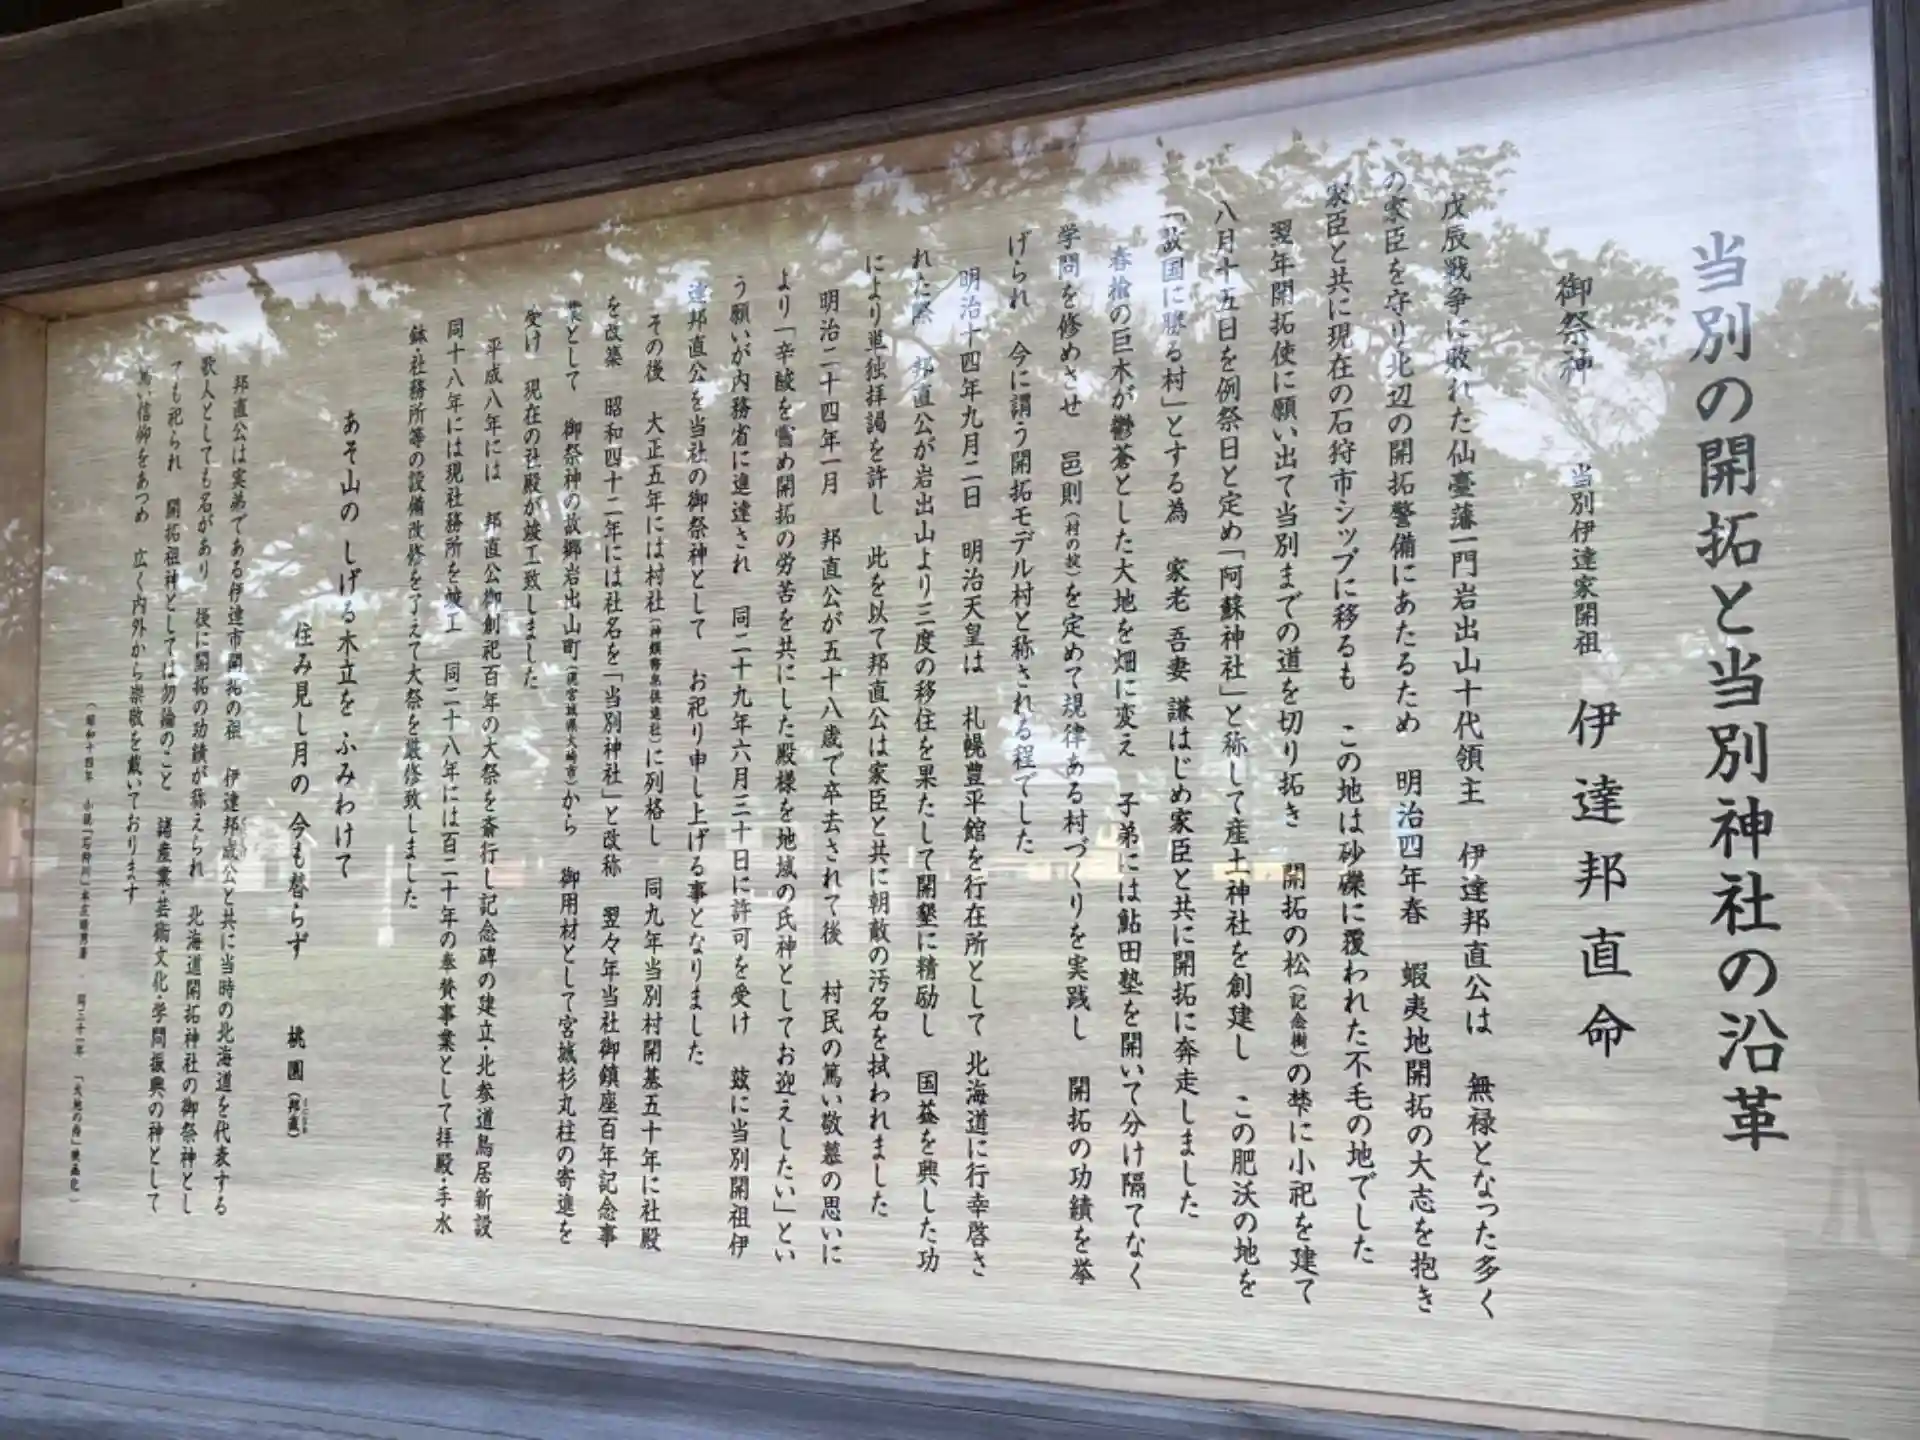 当別の開拓と当別神社の沿革
御祭神 当別伊達家開祖 伊達邦直命
戊辰戦争に敗れた仙臺藩一門岩出山十代領主 伊達邦直公は 無禄となった多く
の家臣を守り北辺の開拓警備にあたるため 明治四年春 蝦夷地開拓の大志を抱き
家臣と共に現在の石狩市シップに移るも この地は砂礫に覆われた不毛の地でした
翌年開拓使に願い出て当別までの道を切り拓き 開拓の松(記念樹)の禁に小祀を建て
八月十五日を例祭日と定め「阿蘇神社」と称して産土神社を創建し この肥沃の地を
「故国に勝る村」とする為 家老 吾妻 謙はじめ家臣と共に開拓に奔走しました
春楡の巨木が鬱蒼とした大地を畑に変え 子弟には鮎田塾を開いて分け隔てなく
学問を修めさせ 邑則(村の掟)を定めて規律ある村づくりを実践し 開拓の功績を挙
げられ 今に謂う開拓モデル村と称される程でした
明治十四年九月二日 明治天皇は 札幌豊平館を行在所として 北海道に行幸啓さ
れた際 邦直公が岩出山より三度の移住を果たして開墾に精励し 国益を興した功
により単独拝謁を許し 此を以て邦直公は家臣と共に朝敵の汚名を拭われました
明治二十四年一月 邦直公が五十八歳で卒去されて後 村民の篤い敬慕の思いに
より「辛酸を嘗め開拓の労苦を共にした殿様を地域の氏神としてお迎えしたい」とい
う願いが内務省に進達され 同二十九年六月三十日に許可を受け 茲に当別開祖伊
達邦直公を当社の御祭神として お祀り申し上げる事となりました
その後 大正五年には村社(神饌幣帛供進社)に列格し 同九年当別村開基五十年に社殿
を改築 昭和四十二年には社名を「当別神社」と改称 翌々年当社御鎮座百年記念事
業として 御祭神の故郷岩出山町(現宮城県大崎市)から 御用材として宮城杉丸柱の寄進を
受け 現在の社殿が竣工致しました
平成八年には 邦直公御創祀百年の大祭を斎行し記念碑の建立・北参道鳥居新設
同十八年には現社務所を竣工 同二十八年には百二十年の奉賛事業として拝殿・手水
鉢・社務所等の設備改修を了えて大祭を厳修致しました
あそ山の しげる木立を ふみわけて
住み見し月の 今も替らず
桃園(邦直)
邦直公は実弟である伊達市開拓の祖 伊達邦成公と共に当時の北海道を代表する
歌人としても名があり 後に開拓の功績が称えられ 北海道開拓神社の御祭神とし
ても祀られ 開拓祖神としては勿論のこと 諸産業・芸術文化・学問振興の神として
篤い信仰をあつめ 広く内外から崇敬を戴いております
(昭和十四年 小説「石狩川」本庄陸男著 ・ 同三十一年 「大地の侍」映画化)